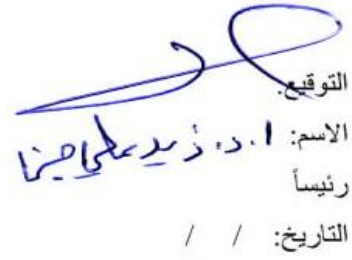 التوقيع:
الاسم: ا.د. زيد علي
رئيساً
التاريخ: / /